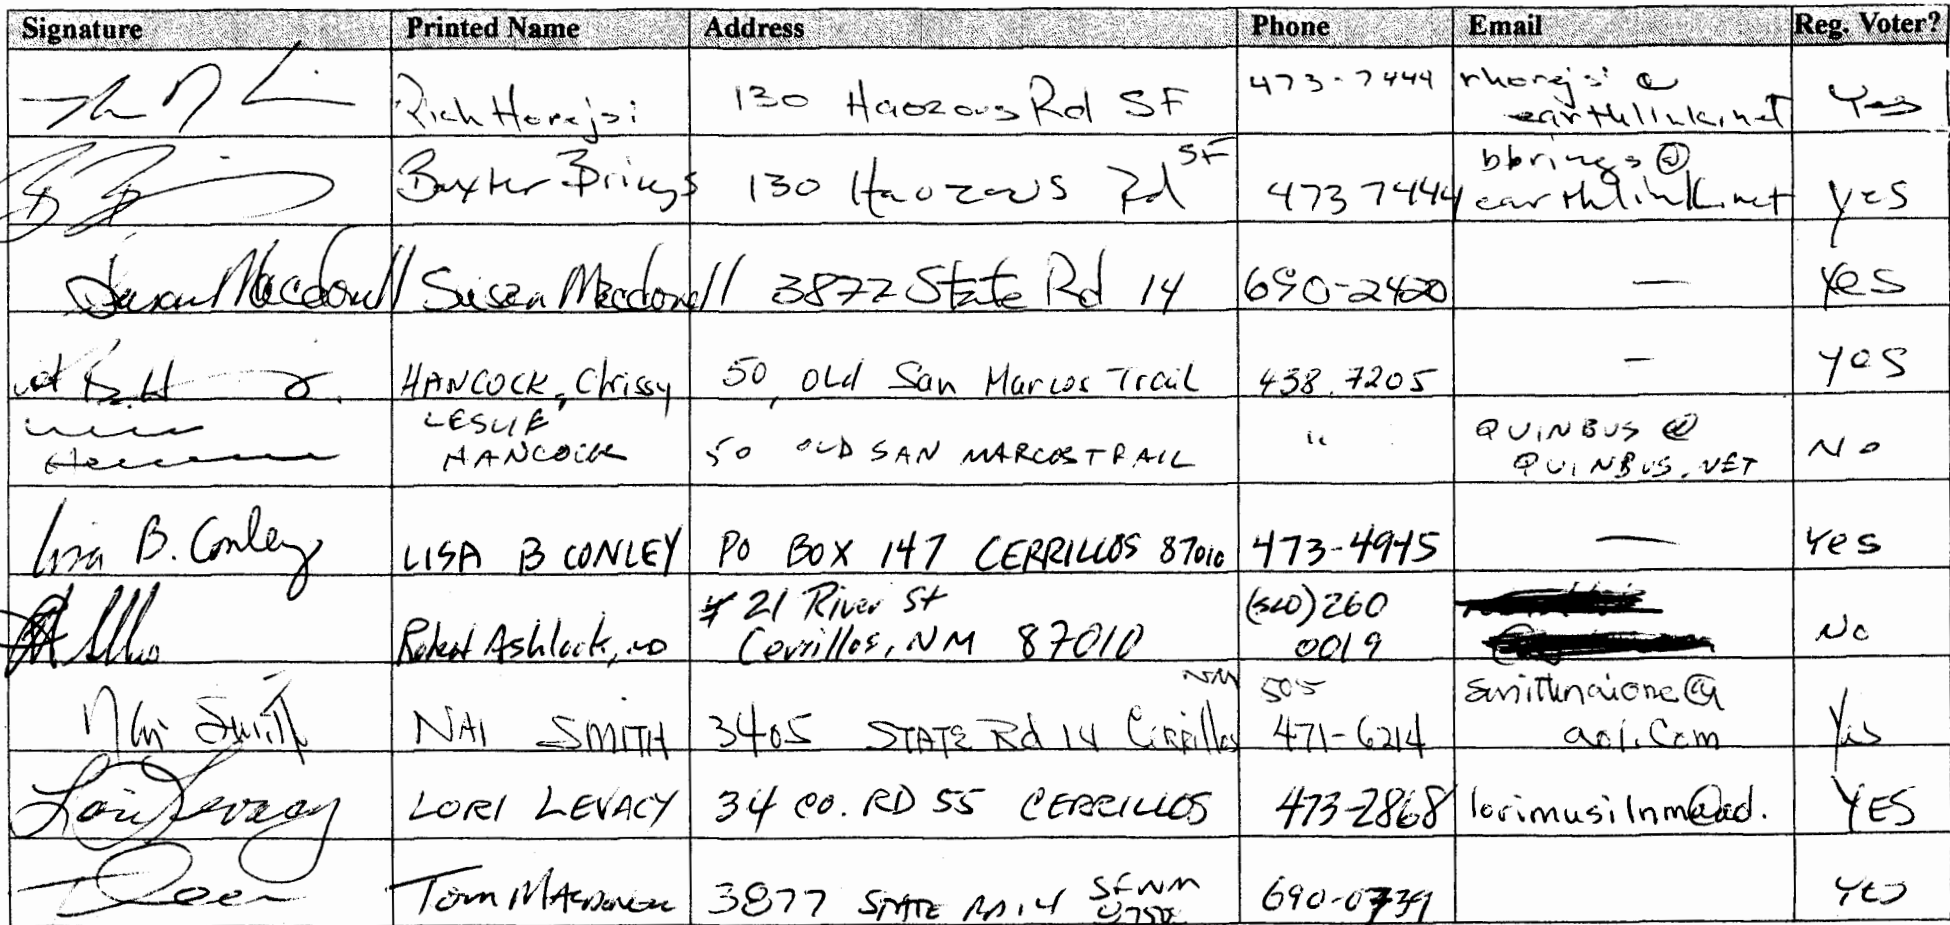 Signature Printed Name Address Phone Email Reg. Voter?
Rich Horejsi 130 Haozous Rd SF 473-7444 rhorejsi @
earthlink.net Yes
Baxter Brings 130 Haozous Rd SF 473 7444 bbrings @
earthlink.net yes
Susan Macdonell Susan Macdonell 3877 State Rd 14 690-2420 — Yes
HANCOCK, Chrissy 50, Old San Marcos Trail 438.7205 — yes
LESLIE
HANCOCK 50 OLD SAN MARCOS TRAIL " QUINBUS @
QUINBUS.NET NO
Lisa B. Conley LISA B CONLEY PO BOX 147 CERRILLOS 87010 473-4945 — Yes
Robert Ashlock, MD # 21 River St
Cerrillos, NM 87010 260
0019 No
Nai Smith NAI SMITH 3405 STATE Rd 14 Cerrillos NM 505
471-6214 smithnaione@
aol.Com Yes
Lori Levacy LORI LEVACY 34 CO. RD 55 CERRILLOS 473-2868 lorimusilnm@aol. YES
Tom Macdonell 3877 STATE RD 14 SF NM 690-0739 Yes